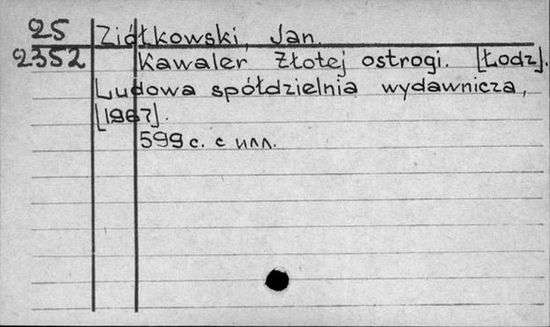 25 Ziółkowski, Jan.
2352 Kawaler Złotej ostrogi. [Łodz].
Ludowa spółdzielnia wydawnicza,
[1967].
599 с. с илл.